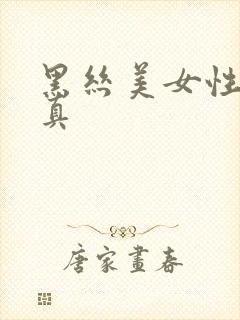 黑丝美女性
真
唐家畫春